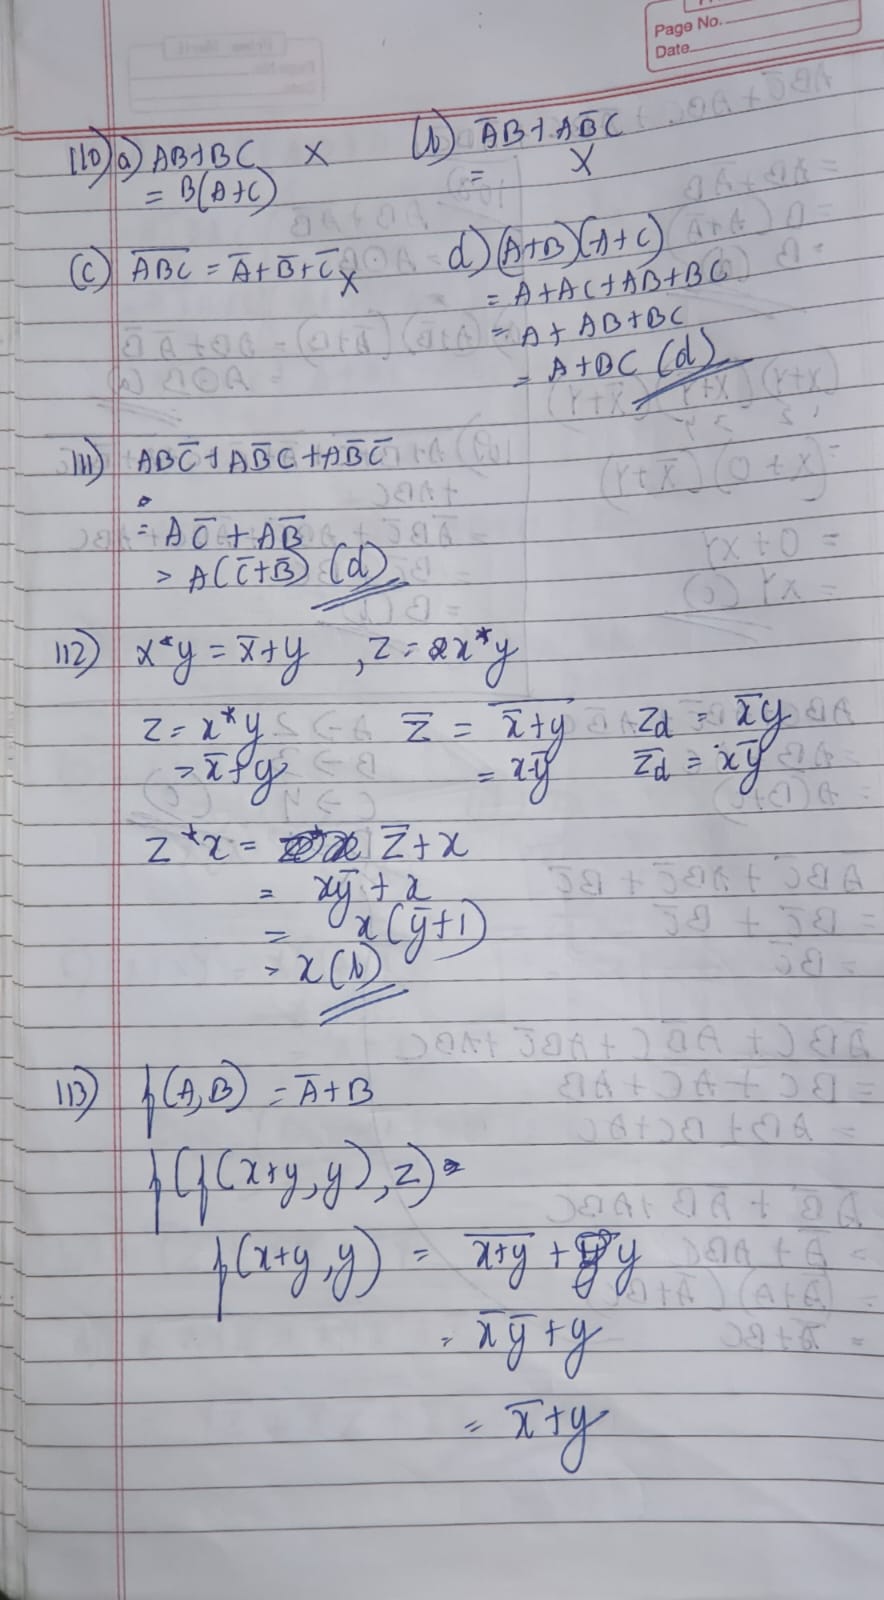 Page No.
Date
110) a) AB+BC X
= B(A+C)
(b) A̅B+AB̅C
= X
(c) A̅B̅C̅ = A̅+B̅+C̅ X
d) (A+B)(A+C)
= A+AC+AB+BC
= A+AB+BC
= A+BC (d)
111) ABC̅+AB̅C+AB̅C̅
= AC̅+AB̅
= A(C̅+B̅) (d)
112) x*y = x̅+y , z = x*y
z = x*y
= x̅+y
z̅ = \overline{x̅+y}
= xy̅
zd = x̅y
z̅d = xy̅
z*x = z̅+x
= xy̅+x
= x(y̅+1)
= x (b)
113) f(A,B) = A̅+B
f(f(x+y,y),z) =
f(x+y,y) = \overline{x+y} + y
= x̅y̅+y
= x̅+y